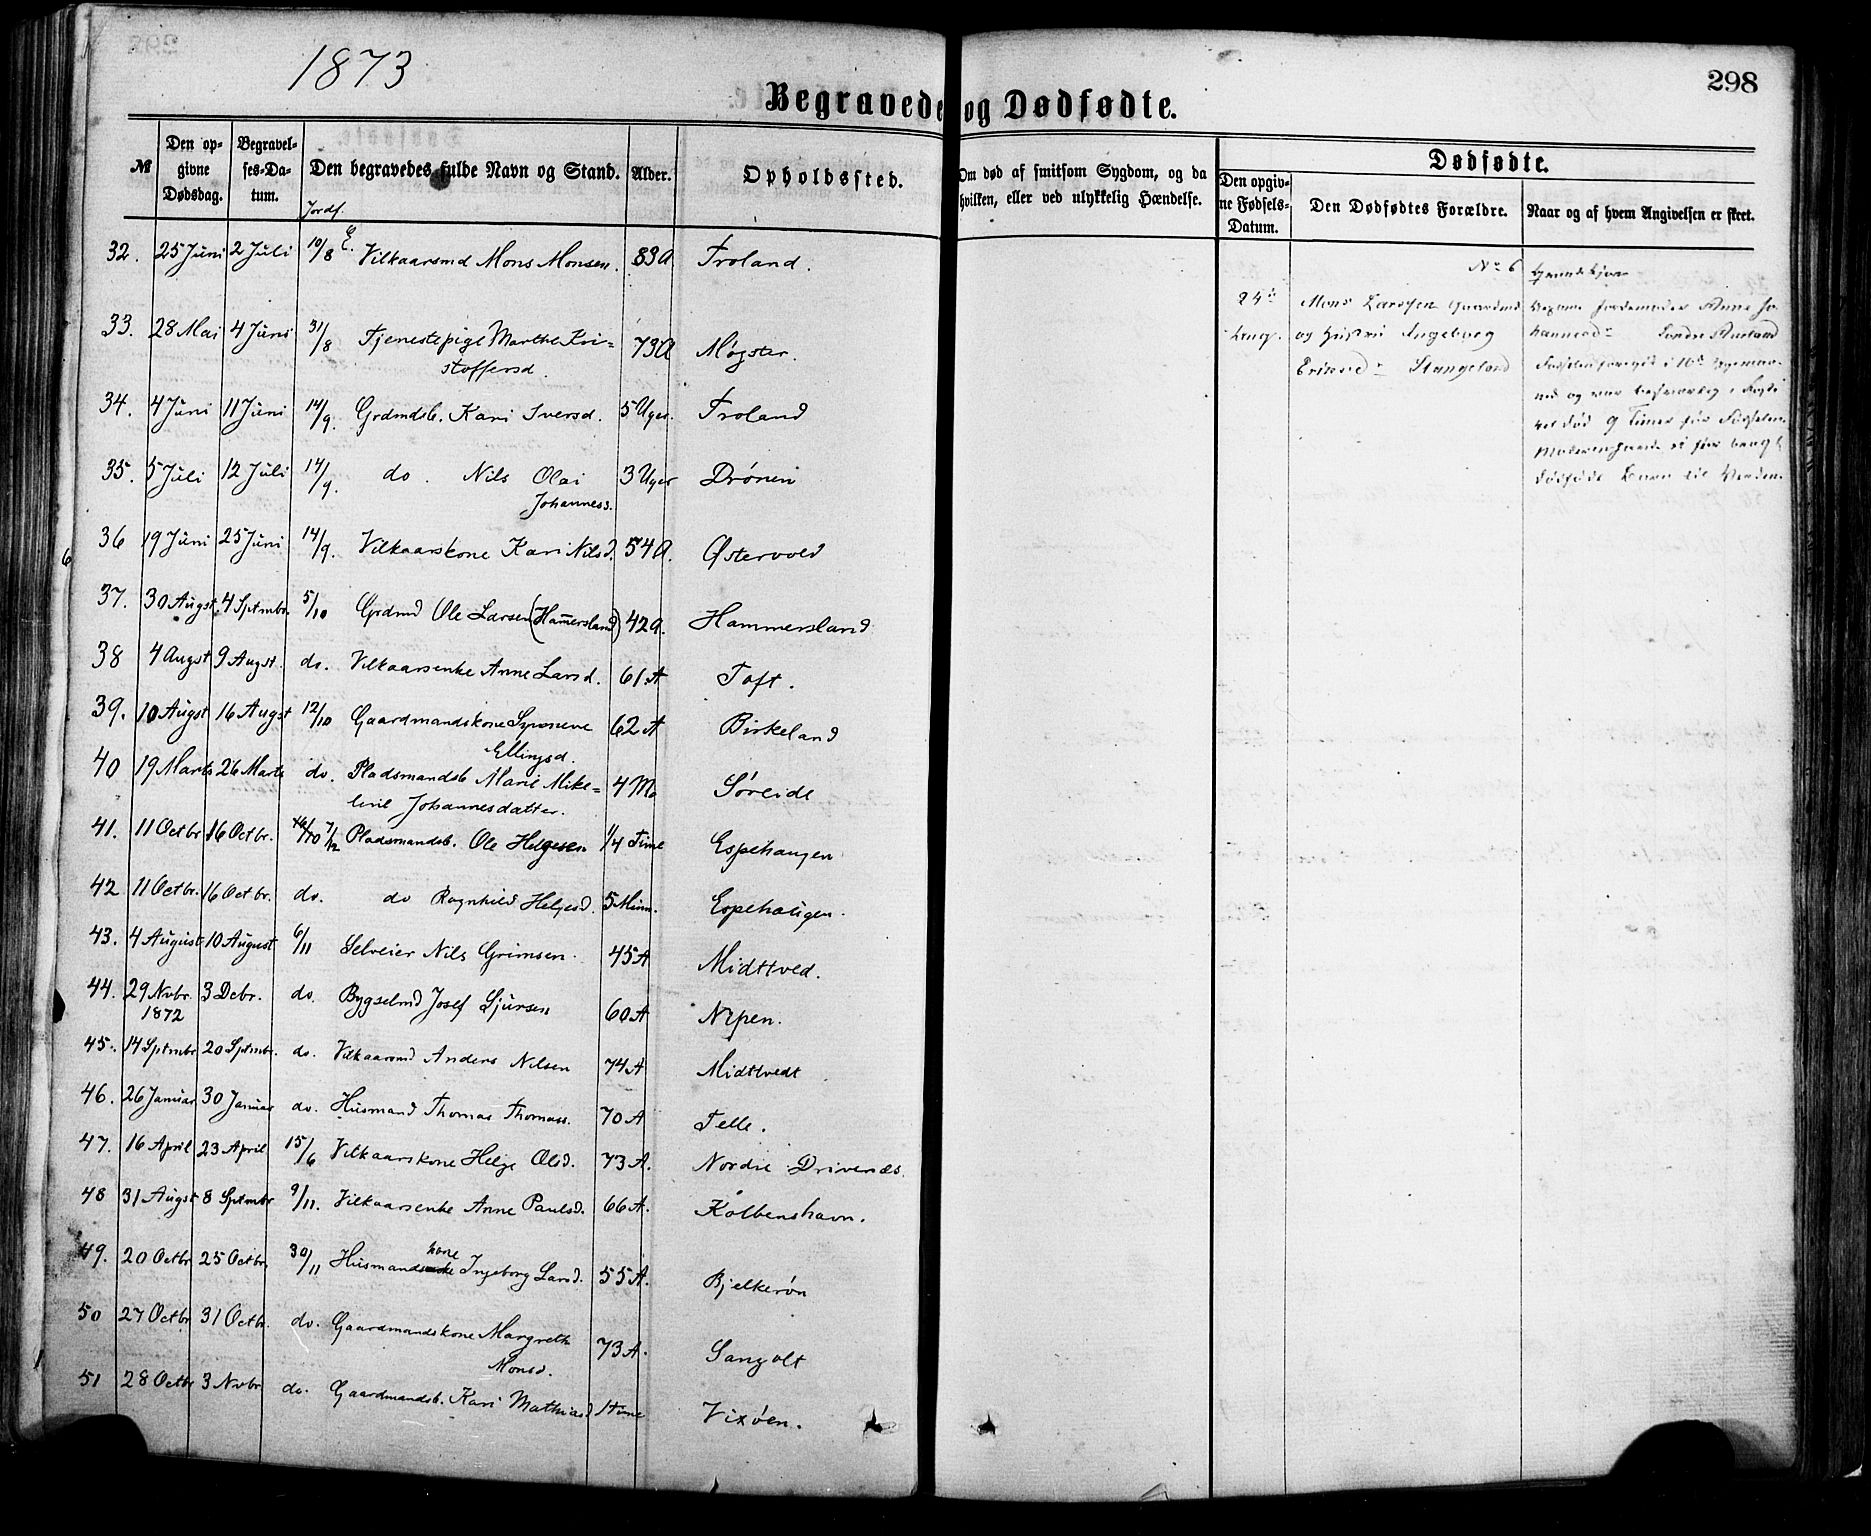 1873
298
Begravede og Dødfødte.
№ Den opgivne Dødsdag. Begravelses-Datum. Den begravedes fulde Navn og Stand. Alder. Opholdssted. Om død af smitsom Sygdom, og da hvilken, eller ved ulykkelig Hændelse. Dødfødte.
Den opgivne Fødsels-Datum. Den Dødfødtes Forældre. Naar og af hvem Angivelsen er skeet.
Jordf.
32. 25 Juni 2 Juli 10/8 Vilkaarsmd Mons Monsen. 83 A Troland.
33. 28 Mai 4 Juni 31/8 Tjenestepige Marthe Kri=
stoffersd. 73 A Møgster.
34. 4 Juni 11 Juni 14/9. Grdmdsb. Kari Iversd. 5 Uger. Troland
35. 5 Juli 12 Juli 14/9. do. Nils Olai
Johanness. 3 Uger Drönen
36 19 Juni 25 Juni 14/9. Vilkaarskone Kari Nilsd. 54 A. Østervold
37. 30 Augst. 4 Sptmbr. 5/10 Grdmd Ole Larsen (Hammersland) 42 A. Hammersland
38 4 Augst 9 Augst. do. Vilkaarsenke Anne Larsd. 61 A Toft.
39. 10 Augst 16 Augst 12/10 Gaardmandskone Synneve
Ellingsd. 62 A Birkeland
40 19 Marts 26 Marts do. Pladsmandsb Marie Mike=
line Johannesdatter. 4 Mo Søreide
41. 11 Octbr 16 Octbr. 7/12 Pladsmandsb. Ole Helgesen 1/4 Time Espehaugen
42 11 Octbr. 16 Octbr. do. do Ragnhild Helgesd. 5 Minn. Espehaugen.
43. 4 August 10 August 6/11 Selveier Nils Grimsen. 45 A Midttved.
44. 29 Nvbr. 3 Debr. do. Bygselmd Josef Sjursen 60 A Nipen.
1872
45. 14 Sptmbr 20 Sptmbr. do. Vilkaarsmd Anders Nilsen 74 A Midttvedt
46. 26 Januar 30 Januar do. Husmand Thomas Thomass. 70 A Telle.
47. 16 April 23 April 15/6 Vilkaarskone Helge Olsd. 73 A. Nordre Drivenes
48 31 Augst 8 Sptmbr 9/11. Vilkaarsenke Anne Paulsd. 66 A. Kolbenshavn.
49. 20 Octbr 25 Octbr. 30/11 Husmandskone Ingeborg Larsd. 55 A. Bjelkerøn
50 27 Octbr 31 Octbr. do. Gaardmandskone Margrethe
Monsd. 73 A. Sangolt
51 28 Octbr 3 Nvbr do. Gaardmandsb. Kari Mathiasd 1 time Vixöen.
No 6
Mons Larssen Gaardmd
og Hustru Ingeborg
Eriksd Stangeland